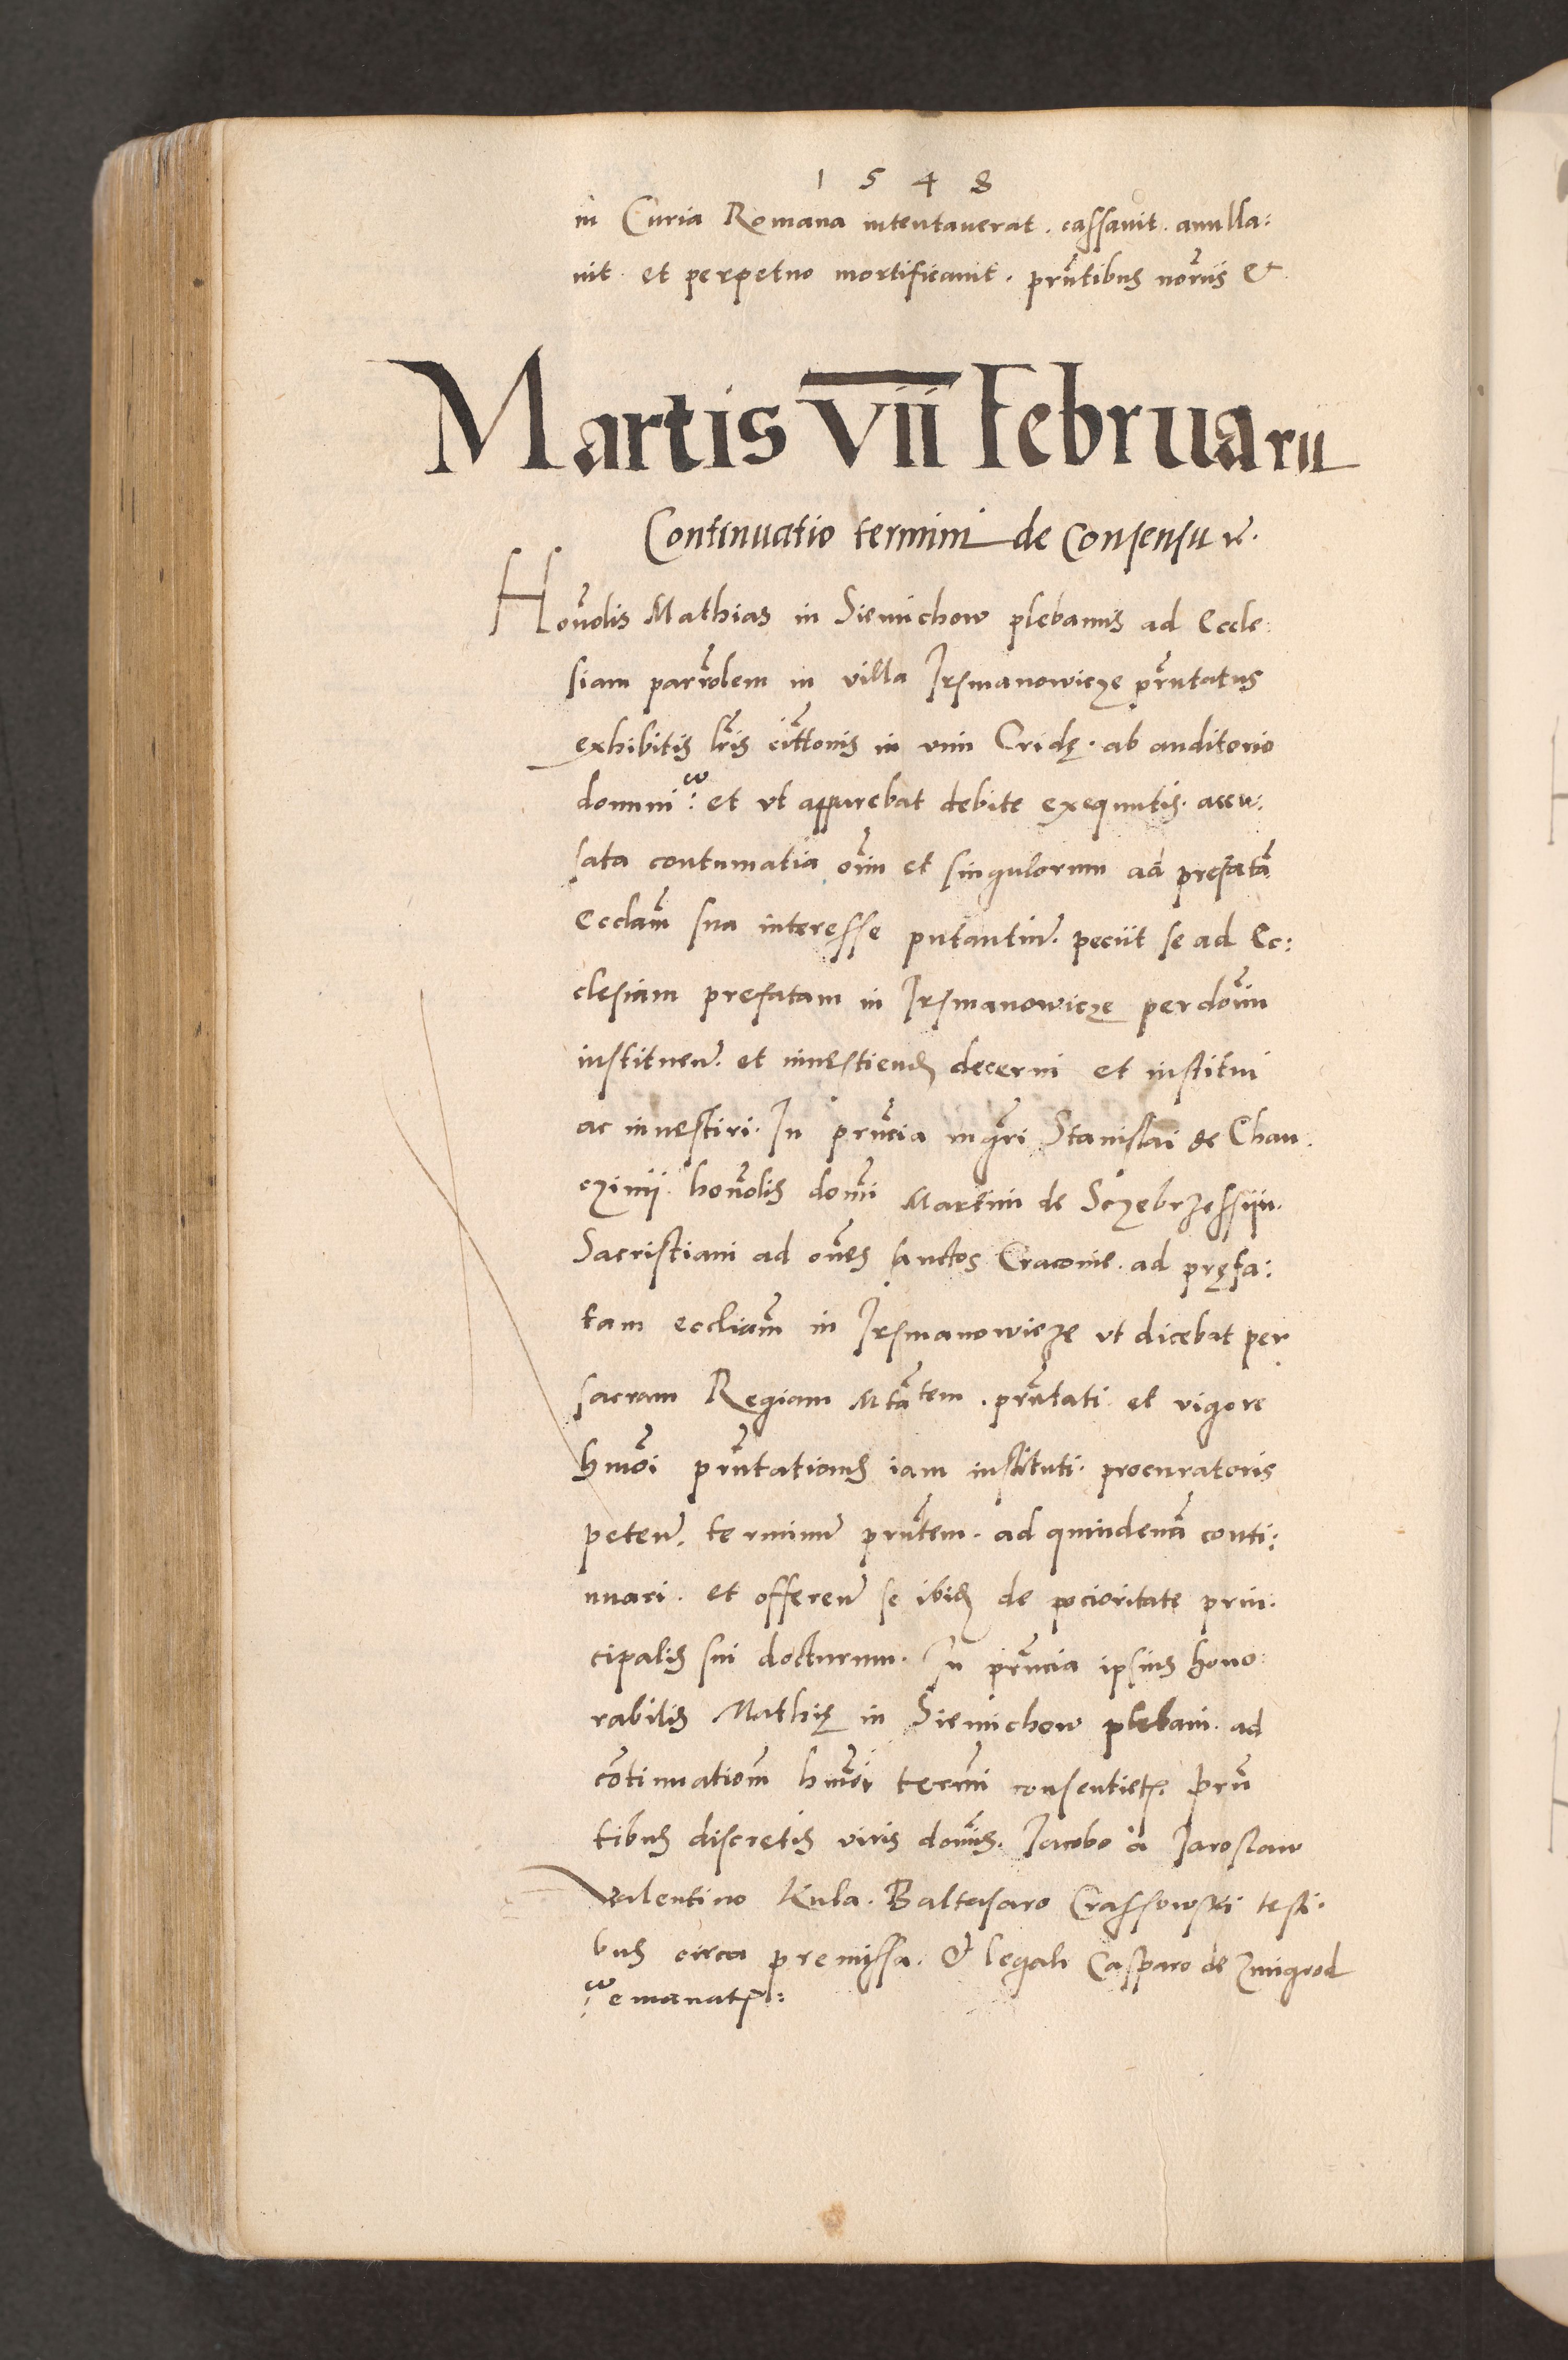 1 5 4 8
in Curia Romana intentauerat. cassauit. anulla:
uit et perpetuo mortificauit. prntibus norys &
Martis VII Februarii
Continuatio termini de Consensu rc.
Honolis Mathias in Siemichow plebanus ad Eccle:
siam parrolem in villa Irzmanowicze prntatus
exhibitis lris cittonis in vim Cridę. ab auditorio
domini et vt apparebat debite exequutis. accu:
sata contumatia oim et singulorum ad prefatã
Ecclam sua interesse putantium. peciit se ad Ec:
clesiam prefatam in Irzmanowicze per donum
instituen. et inuestiend decerni et institui
ac inuestiri. In prncia mgri Stanislai de Chan
czinij. honolis domi Martini de Sczebrzessijn.
Sacristiani ad omes sanctos Cracouie. ad pręfa:
tam eccliam in Irzmanowicze vt dicebat per
sacram Regiam Mtãtem. prntati. et vigore
hmoi prntationis iam instituti. procuratoris
peten. terminum prntem. ad quindenã conti:
nuari. et offeren se ibid de pocioritate prin:
cipalis sui docturum. In prncia ipsius hono:
rabilis Mathię in Siemichow plebani. ad
cõtinuatiom hmoi termi consentietis. prn
tibus discretis viris domis. Iacobo a Iaroslaw
Valentino Kula. Baltasaro Crassowski testi:
bus circa premissa. & legali Casparo de Zmigrod
emanatis: